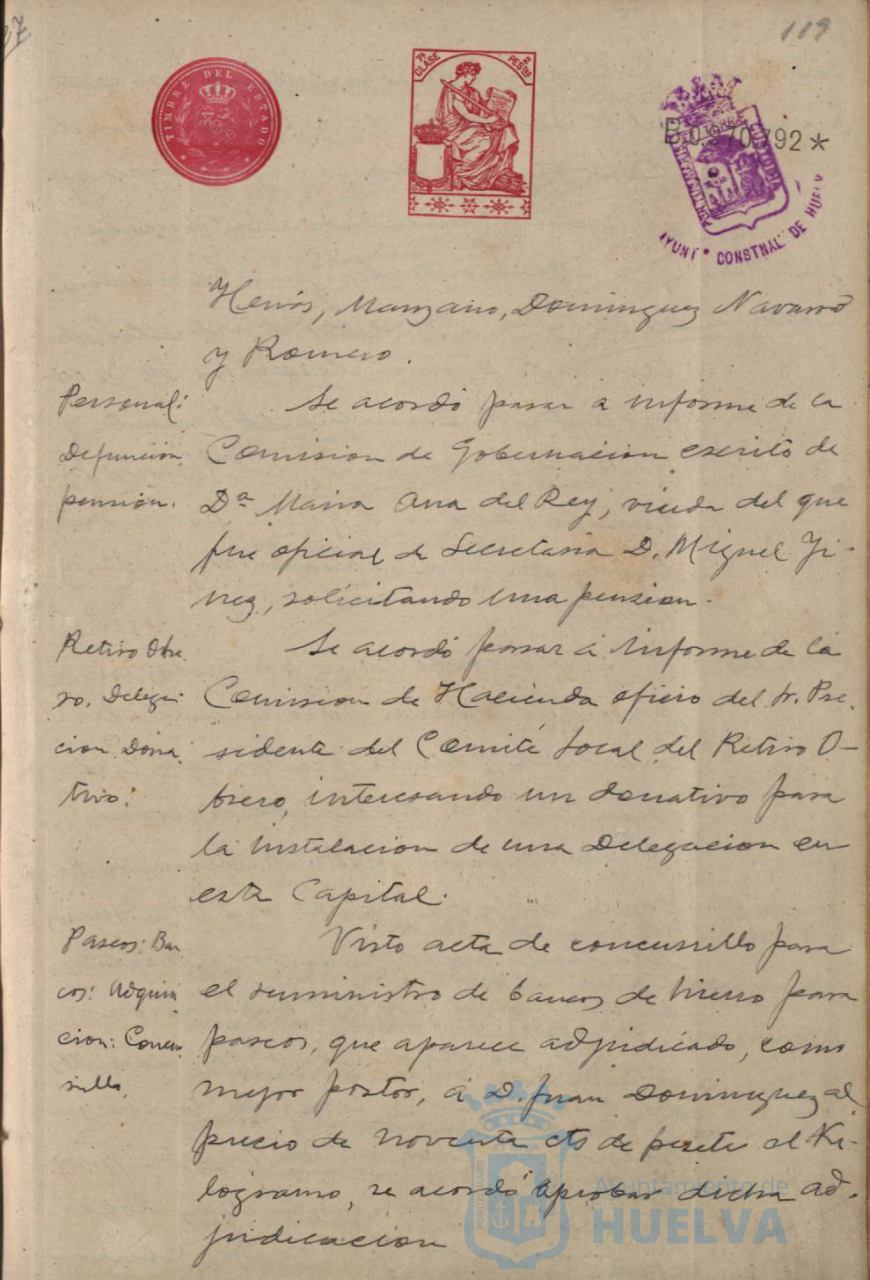 119
TIMBRE DEL ESTADO
7ª CLASE
2 PESTAS
70792*
AYUNTº CONSTNAL DE HUELV
Manzano, Dominguez Navarro
y Romero.
Personal:
Defuncion,
pension.
Se acordó pasar a informe de la
Comision de Gobernacion escrito de
Dª Maria Ana del Rey, viuda del que
fue oficial de Secretaria D. Miguel Ji-
nez, solicitando una pension.
Retiro Obre
ro. Delega
cion Dona
tivo:
Se acordó pasar á informe de la
Comision de Hacienda oficio del Sr. Pre-
sidente del Comité local del Retiro O-
brero, interesando un donativo para
la instalacion de una Delegacion en
esta Capital.
Paseos: Ban
cos: Adquisi
cion: Concur
sillo.
Visto acta de concursillo para
el suministro de bancos de hierro para
paseos, que aparece adjudicado, como
mejor postor, á D. Juan Dominguez al
precio de noventa cts de peseta el Ki-
logramo, se acordó aprobar dicha ad-
judicacion
Ayuntamiento de
HUELVA